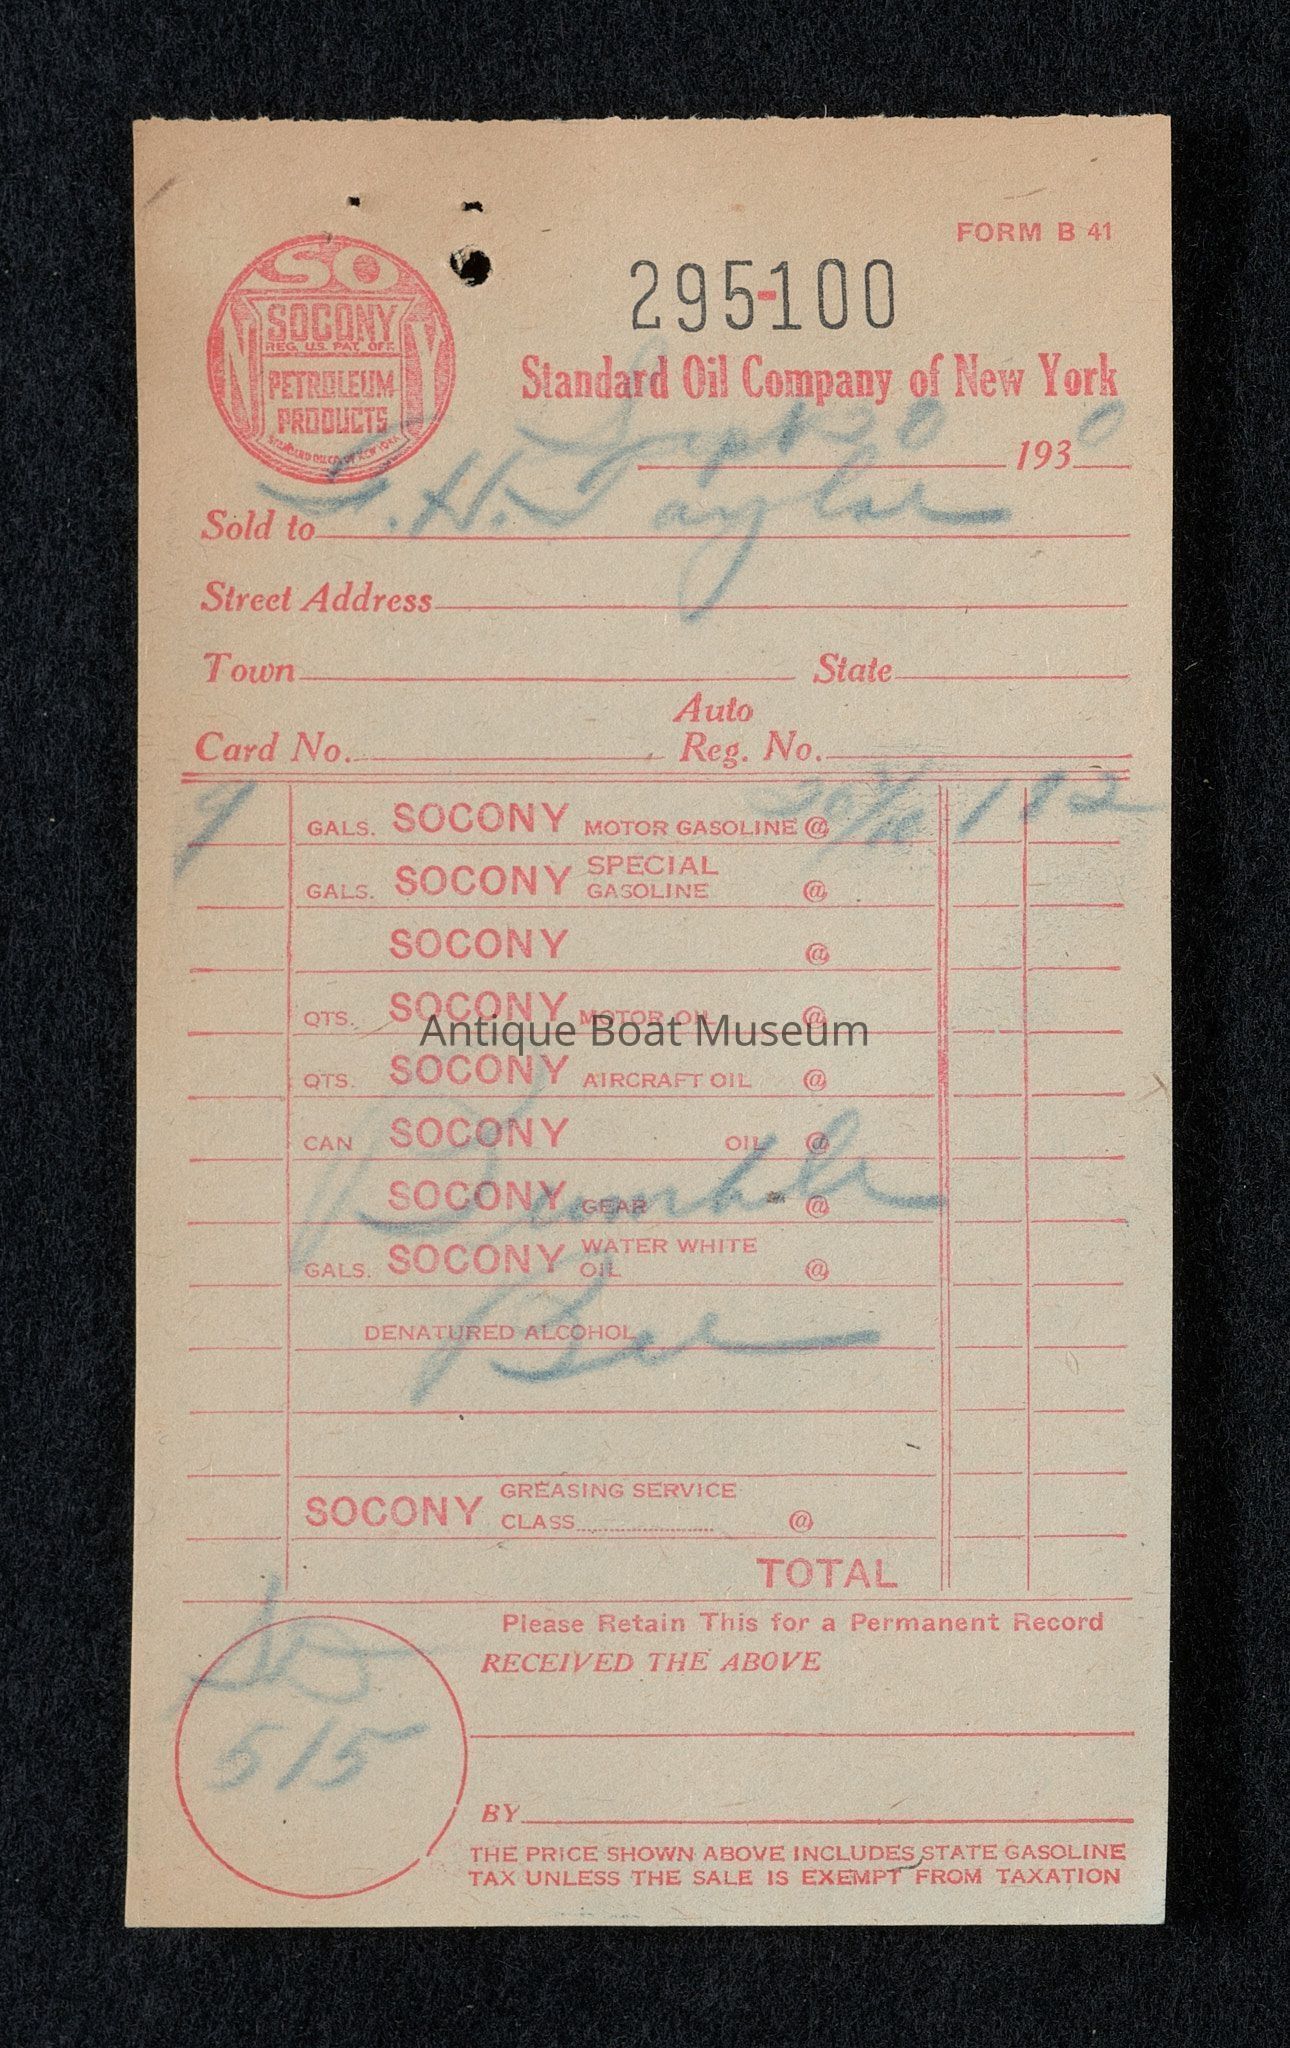 FORM B 41
SO
NY
SOCONY
REG. U.S. PAT. OFF.
PETROLEUM
PRODUCTS
STANDARD OIL CO. OF NEW YORK
295-100
Standard Oil Company of New York
Sept 30 1930
Sold to H. Taylor
Street Address
Town State
Auto
Card No. Reg. No.
9 GALS. SOCONY MOTOR GASOLINE @ 20 1 82
GALS. SOCONY SPECIAL GASOLINE @
SOCONY @
QTS. SOCONY MOTOR OIL @
Antique Boat Museum
QTS. SOCONY AIRCRAFT OIL @
CAN SOCONY OIL @
Bumble
SOCONY GEAR @
GALS. SOCONY WATER WHITE OIL @
Bee
DENATURED ALCOHOL
SOCONY GREASING SERVICE
CLASS @
TOTAL
Please Retain This for a Permanent Record
RECEIVED THE ABOVE
515
BY
THE PRICE SHOWN ABOVE INCLUDES STATE GASOLINE
TAX UNLESS THE SALE IS EXEMPT FROM TAXATION